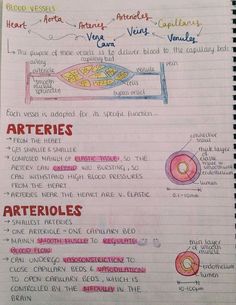 BLOOD VESSELS
Heart → Aorta → Arteries → Arterioles → Capillaries
Vena Cava ← Veins ← Venules
→ The purpose of these vessels is to deliver blood to the capillary bed.
artery
capillary bed
vein
arteriole
smooth muscle sphincters
venule
bypass vessel
Each vessel is adapted for its specific function.
ARTERIES
→ FROM THE HEART
→ GET SMALLER & SMALLER
→ COMPOSED MAINLY OF ELASTIC TISSUE, SO THE
ARTERY CAN EXPAND W/O BURSTING, SO
CAN WITHSTAND HIGH BLOOD PRESSURES
FROM THE HEART
→ ARTERIES NEAR THE HEART ARE V. ELASTIC
connective tissue
thick layer of
endothelium
lumen
0.4-10mm
ARTERIOLES
→ SMALLEST ARTERIES
→ ONE ARTERIOLE = ONE CAPILLARY BED
→ MAINLY SMOOTH MUSCLE TO REGULATE
BLOOD FLOW
→ CAN UNDERGO VASOCONSTRICTION TO
CLOSE CAPILLARY BEDS & VASODILATION
TO OPEN CAPILLARY BEDS, WHICH IS
CONTROLLED BY THE MEDULLA IN THE
BRAIN
thick layer of smooth muscle
endothelium
lumen